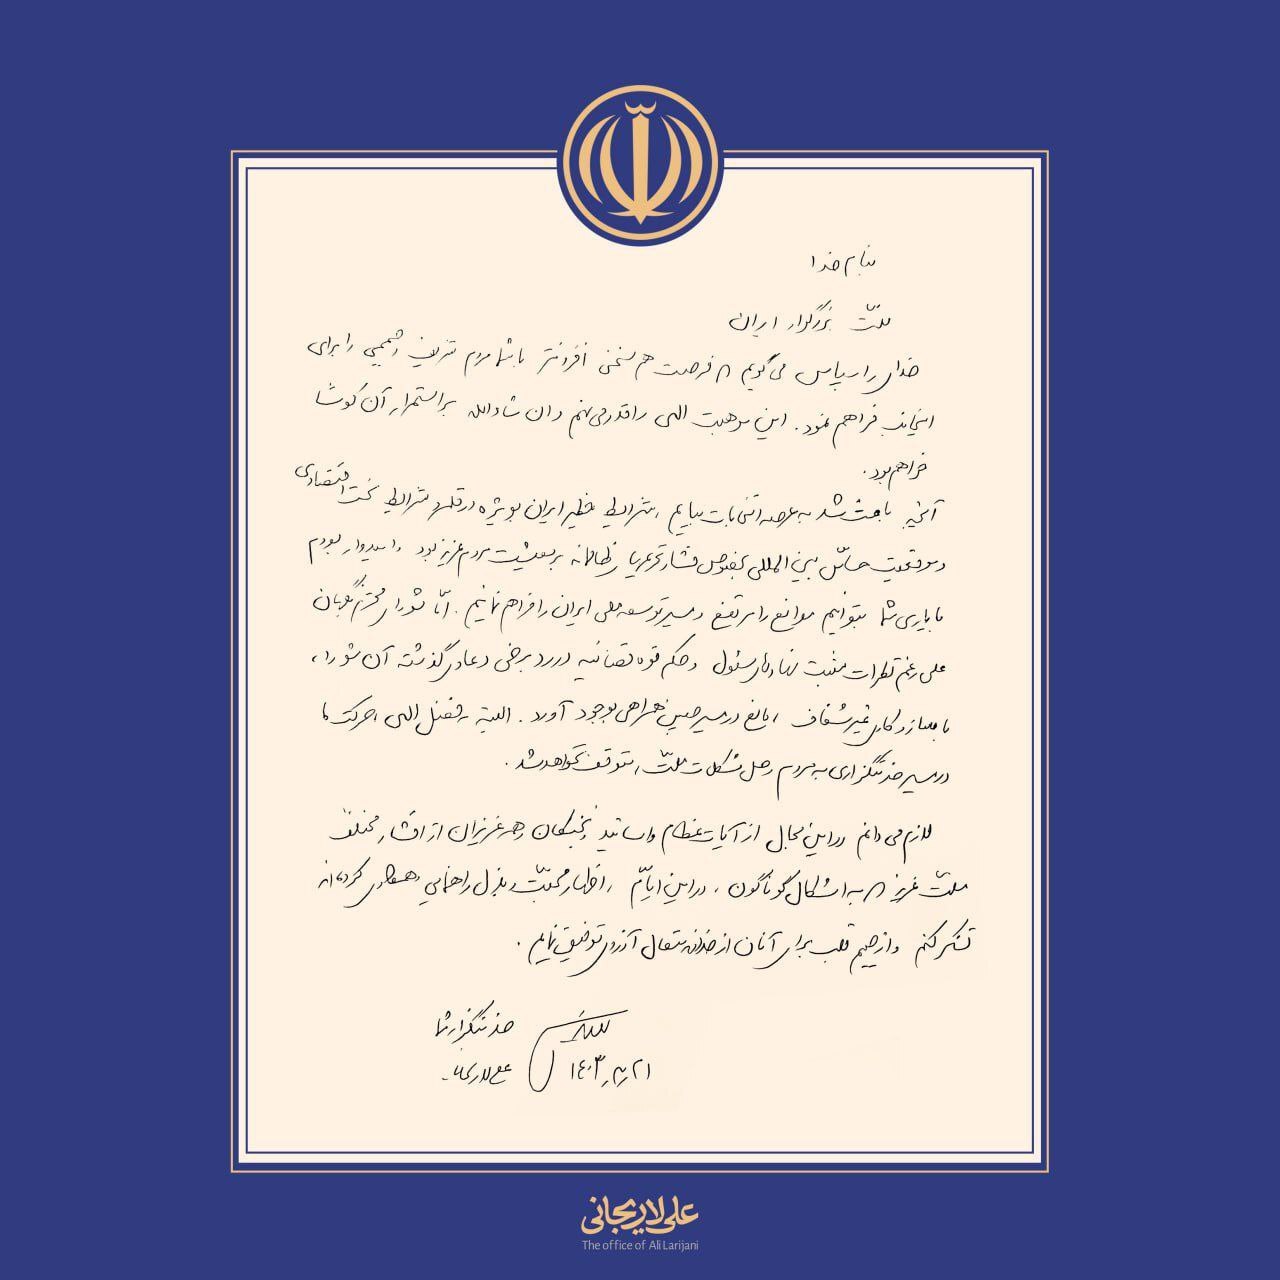 بنام خدا
ملّت بزرگوار ایران
خدای را سپاس می گویم که فرصت هم سخنی افزونتر با شما مردم شریف و صمیمی را برای
اینجانب فراهم نمود. این موهبت الهی را قدر می نهم و ان شاءالله بر استمرار آن کوشا
خواهم بود.
آنچه باعث شد به عرصه انتخابات بیایم، شرایط خطیر ایران بویژه در قلمرو شرایط سخت اقتصادی
و موقعیت حساس بین المللی بخصوص فشار تحریم های ظالمانه بر معیشت مردم عزیز بود و امیدوار بودم
با یاری شما بتوانیم موانع را مرتفع و مسیر توسعه ملی ایران را فراهم نمائیم. امّا شورای محترم نگهبان
علی رغم نظرات مثبت نهادهای مسئول و حکم قوه قضائیه در رد برخی دعاوی گذشته آن شورا،
با بسازوکاری غیر شفاف، مانع در مسیر چنین همراهی بوجود آورد. البته به فضل الهی، حرکت ما
در مسیر خدمتگزاری به مردم و حل مشکلات ملّت، متوقف نخواهد شد.
لازم می دانم در این مجال از آیات عظام و اساتید و نخبگان و همه عزیزان از اقشار مختلف
ملّت عزیز که به اشکال گوناگون، در این ایّام، اظهار محبّت و بذل راهنمایی و همکاری کرده اند
تشکر کنم و از صمیم قلب برای آنان از خداوند متعال آرزوی توفیق نمایم.
خدمتگزار شما
علی لاریجانی
۱۴۰۳٫۳٫۲۱
علی لاریجانی
The office of Ali Larijani